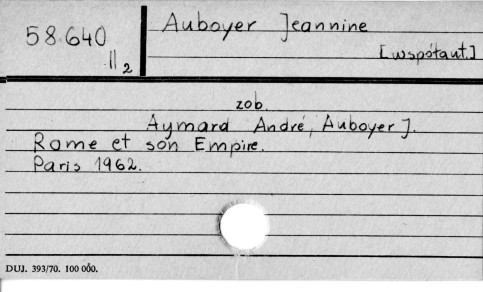 58.640
II 2
Auboyer Jeannine
[współaut.]
zob.
Aymard André, Auboyer J.
Rome et son Empire.
Paris 1962.
DUJ. 393/70. 100 000.